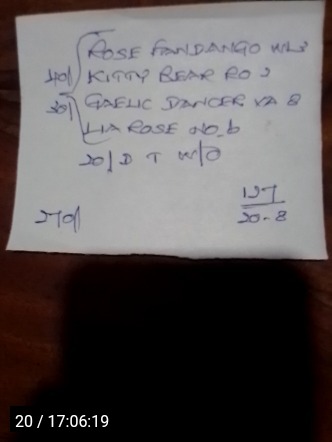 ROSE FANDANGO WL3
40/ KITTY BEAR RO 2
30/ GAELIC DANCER YA 8
LIA ROSE NO.6
20/ D T W/O
127
270/ 20-8
20 / 17:06:19